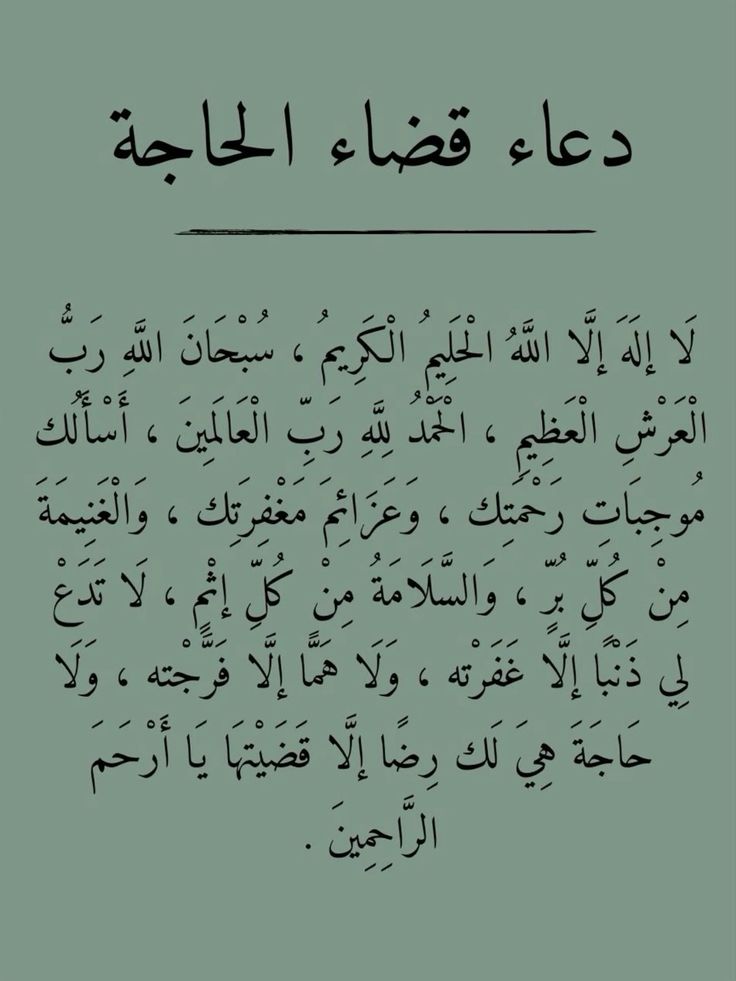 دعاء قضاء الحاجة
لَا إلَهَ إلَّا اللَّهُ الْحَلِيمُ الْكَرِيمُ ، سُبْحَانَ اللَّهِ رَبُّ
الْعَرْشِ الْعَظِيمِ ، الْحَمْدُ لِلَّهِ رَبِّ الْعَالَمِينَ ، أَسْأَلُك
مُوجِبَاتِ رَحْمَتِك ، وَعَزَائِمَ مَغْفِرَتِك ، وَالْغَنِيمَةَ
مِنْ كُلِّ بُرٍّ ، وَالسَّلَامَةُ مِنْ كُلِّ إثْمٍ ، لَا تَدَعْ
لِي ذَنْبًا إلَّا غَفَرْته ، وَلَا هَمًّا إلَّا فَرَّجْته ، وَلَا
حَاجَةَ هِيَ لَك رِضًا إلَّا قَضَيْتهَا يَا أَرْحَمَ
الرَّاحِمِينَ .